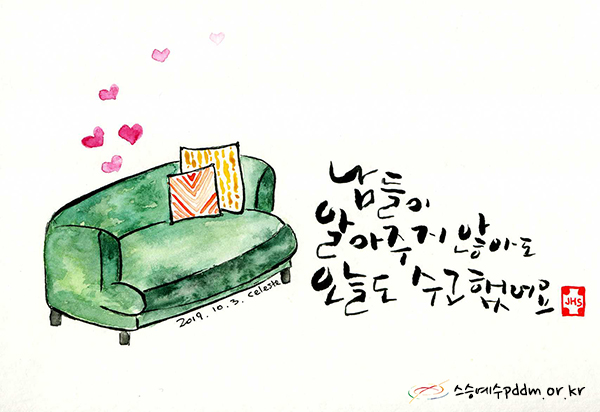 남들이
알아주지 않아도
오늘도 수고했어요
JHS
2019. 10. 3. celeste
스승예수pddm.or.kr